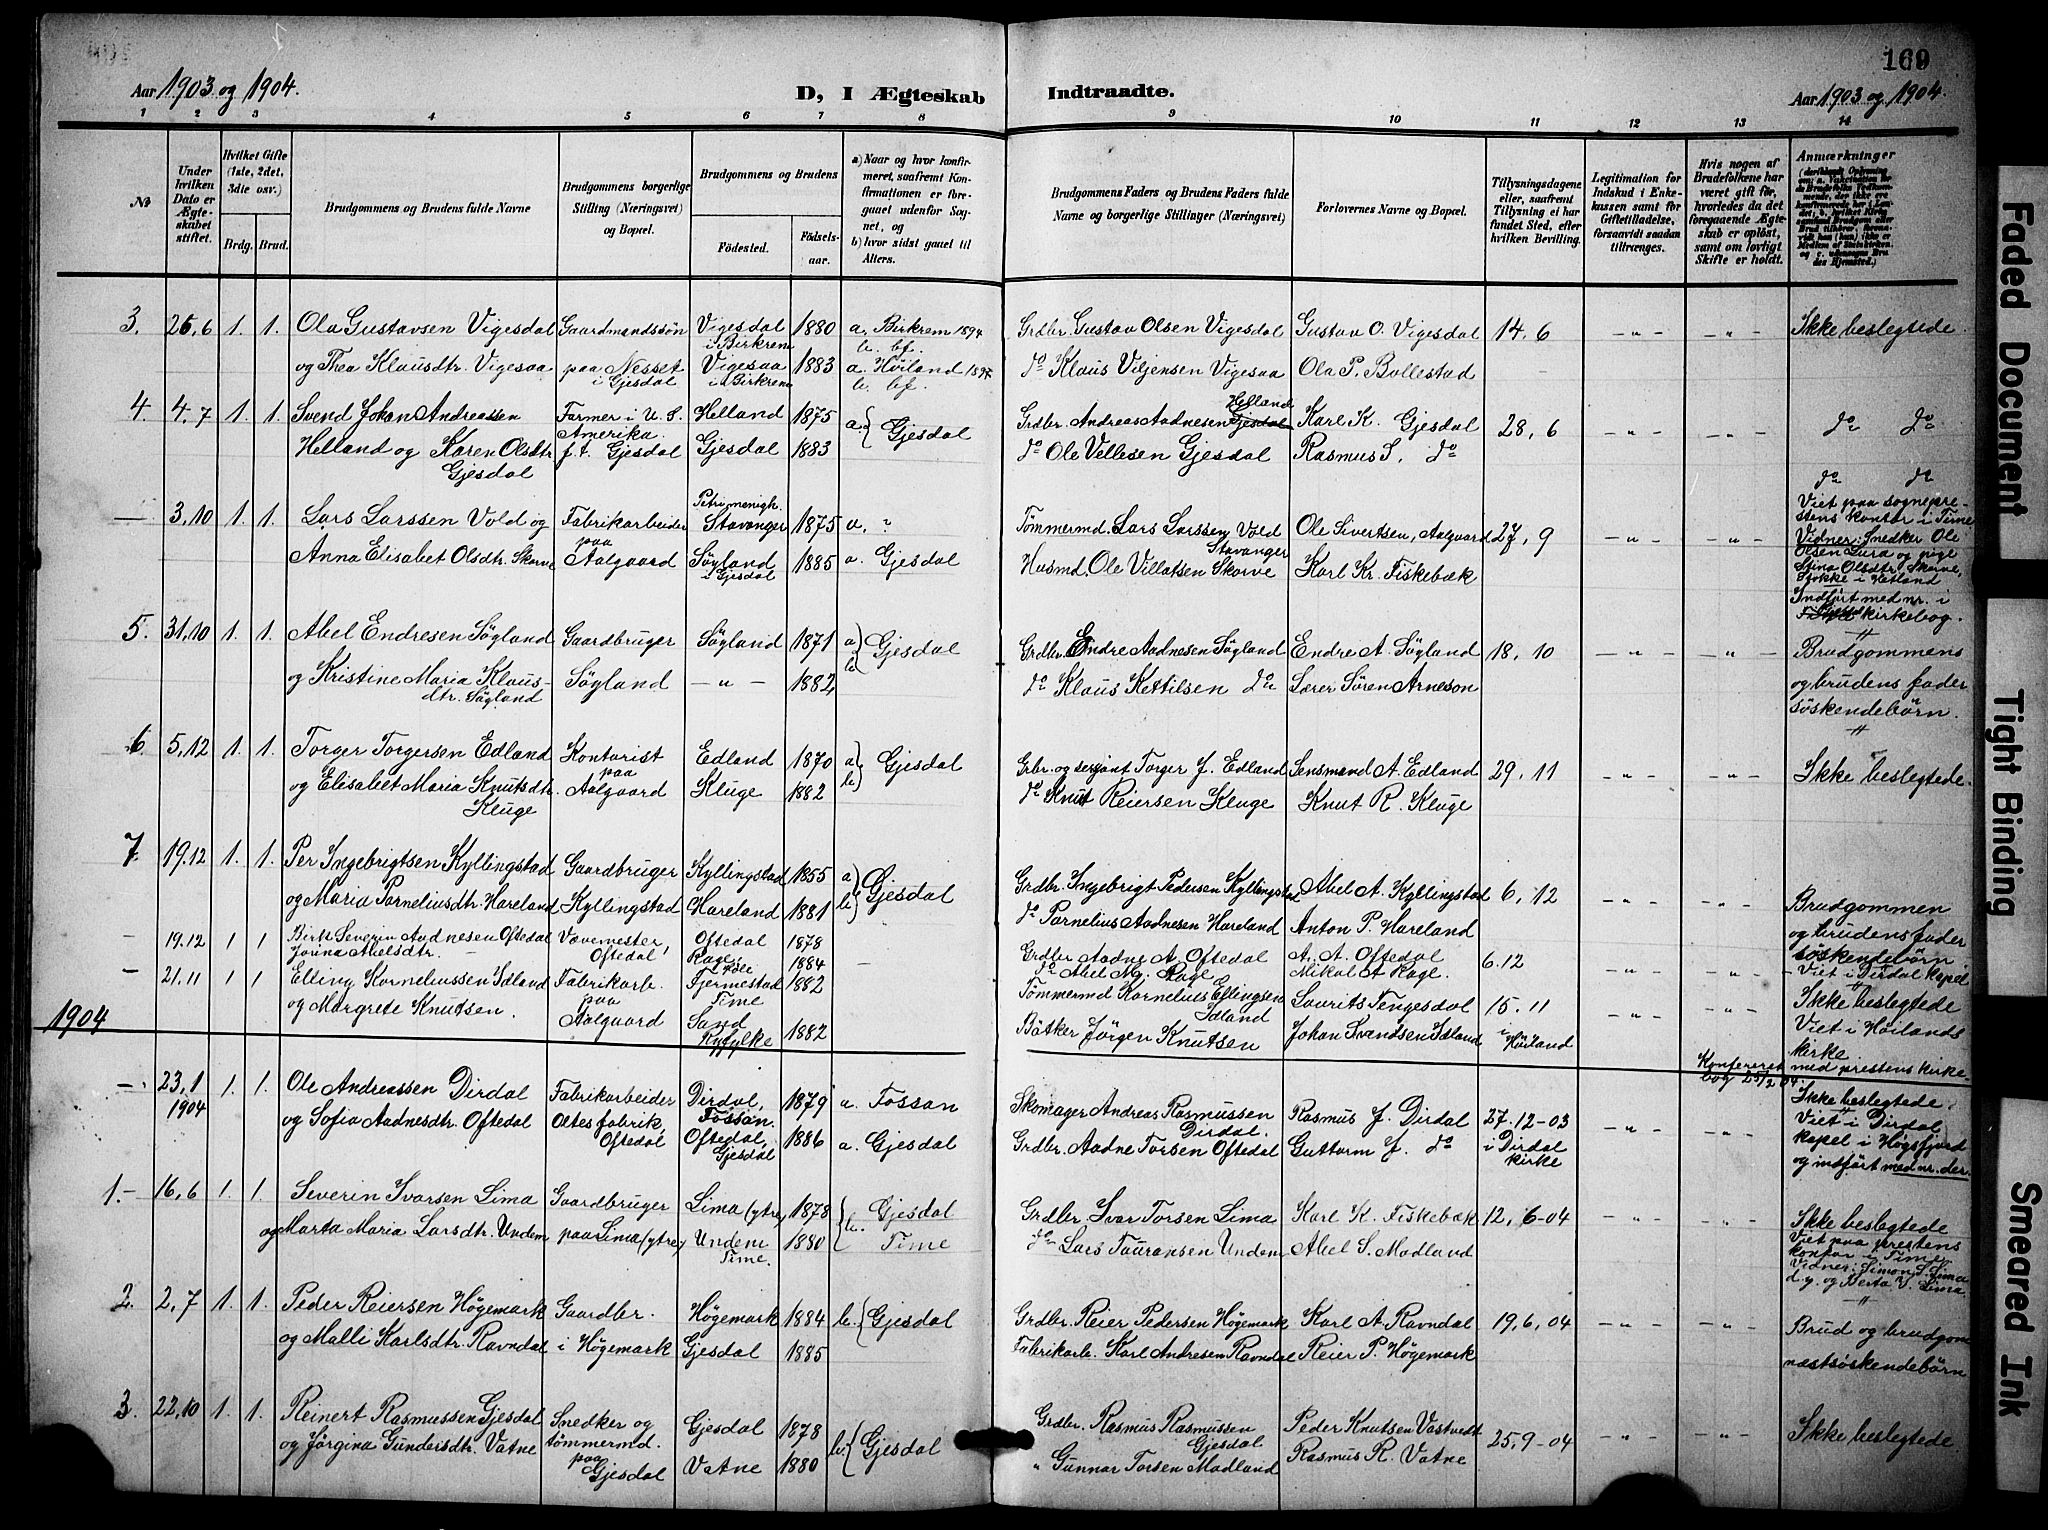 169
Aar 1903 og 1904.
D, I Ægteskab Indtraadte.
Aar 1903 og 1904.
1 2 3 4 5 6 7 8 9 10 11 12 13 14
No
Under hvilken Dato er Ægteskabet stiftet.
Hvilket Gifte (1ste, 2det, 3die osv.)
Brdg. Brud.
Brudgommens og Brudens fulde Navne
Brudgommens borgerlige Stilling (Næringsvei) og Bopæl.
Brudgommens og Brudens
Födested. Födselsaar.
a) Naar og hvor konfirmeret, saafremt Konfirmationen er foregaaet udenfor Sognet, og
b) hvor sidst gaaet til Alters.
Brudgommens Faders og Brudens Faders fulde Navne og borgerlige Stillinger (Næringsvei)
Forlovernes Navne og Bopæl.
Tillysningsdagene eller, saafremt Tillysning ei har fundet Sted, efter hvilken Bevilling.
Legitimation for Indskud i Enkekassen samt for Giftetilladelse, forsaavidt saadan tiltrænges.
Hvis nogen af Brudefolkene har været gift før, hvorledes da det foregaaende Ægteskab er oplöst, samt om lovligt Skifte er holdt.
Anmærkninger
3. 26,6 1. 1. Ola Gustavsen Vigesdal Gaardmandssøn Vigesdal i Birkrem 1880 a. Birkrem 1894 b. bf. Grdbr. Gustav Olsen Vigesdal Gustav O. Vigesdal 14,6 -"- -"- Ikke beslegtede.
og Thea Klausdtr. Vigesaa paa Nesset i Gjesdal Vigesaa i Birkrem 1883 a. Høiland 1897 b. bf. do Klaus Viljensen Vigesaa Ola P. Bollestad
4. 4,7 1. 1. Svend Johan Andreassen Farmer i U. S. Amerika. Helland 1875 a. { Gjesdal Grdbr. Andreas Aadnesen Helland Gjesdal Karl K. Gjesdal 28,6 -"- -"- do do
Helland og Karen Olsdtr. Gjesdal f. t. Gjesdal Gjesdal 1883 do Ole Vellesen Gjesdal Rasmus S. do
— 3,10 1. 1. Lars Larssen Vold og Fabrikarbeider paa Petrimenigh. Stavanger 1875 a. " Tømmermd. Lars Larssen Vold Stavanger Ole Sivertsen, Aalgaard 27,9 -"- -"- do do
Anna Elisabet Olsdtr. Skorve Aalgaard Søyland i Gjesdal 1885 a. Gjesdal Husmd. Ole Villatsen Skorve Karl Kr. Fiskebæk
Viet paa sogneprestens kontor i Time
Vidner: Snedker Ole Olsen Lura og pige
Stina Olsdtr. Skorve, Stokke i Hetland
Indført med nr. i
kirkebog.
5. 31,10 1. 1. Abel Endresen Søyland Gaardbruger Søyland 1871 a) b) Gjesdal Grdbr. Endre Aadnesen Søyland Endre A. Søyland 18,10 -"- -"- Brudgommens
og Kristine Maria Klausdtr. Søyland Søyland -"- 1882, do Klaus Kettilsen do Lærer Søren Arneson og brudens fader søskendebørn.
6. 5,12 1. 1. Torger Torgersen Edland Kontorist paa Edland 1870 a) b) Gjesdal Grbr. og serjant Torger J. Edland Lensmand A. Edland 29,11 -"- -"- Ikke beslegtede.
og Elisabet Maria Knutsdtr. Kluge Aalgaard Kluge 1882 do Knut Reiersen Kluge Knut R. Kluge
7. 19,12 1. 1. Per Ingebrigtsen Kyllingstad Gaardbruger Kyllingstad 1855 a) b) Gjesdal Grdbr. Ingebrigt Pedersen Kyllingstad Abel A. Kyllingstad 6,12 -"- -"- Brudgommen
og Maria Parneliusdtr. Hareland Kyllingstad Hareland 1881 do Parnelius Aadnesen Hareland Anton P. Hareland og brudens fader søskendebørn.
— 19.12 1 1 Severin Aadnesen Oftedal Vævemester, Oftedal Oftedal 1878 — Grdbr. Aadne A. Oftedal A. A. Oftedal 6.12 -"- -"- Viet i Dirdal kapel
1884 do Abel Rage Mikal A. Rage.
— 21.11 1 1 Elling Korneliussen Idland Fabrikarb. paa Time 1882 Tømmermd Kornelius Ellingsen Idland Laurits Tengesdal 15.11 -"- -"- Ikke beslegtede
og Margrete Knutsen. Aalgaard Sand Ryfylke 1882 Bøtker Jørgen Knutsen Johan Svendsen Idland i Høiland Viet i Høilands kirke.
1904
Konfereret med prestens kirkebog 25/2 04
—. 23,1 1904 1. 1. Ole Andreassen Dirdal Fabrikarbeider Dirdal, Fossan. 1879 a. Fossan Skomager Andreas Rasmussen Dirdal. Rasmus J. Dirdal 27.12-03 -"- -"- Ikke beslegtede.
og Sofia Aadnesdtr. Oftedal Oltesfabrik, Oftedal Oftedal, Gjesdal 1886 a. Gjesdal Grdbr. Aadne Torsen Oftedal Guttorm J. do i Dirdal kirke
Viet i Dirdal kapel i Høgsfjord og indført med nr. der.
1.- 16,6 1. 1. Severin Ivarsen Lima Gaardbruger Lima (ytre) 1878 b. Gjesdal Grdbr. Ivar Torsen Lima Karl K. Fiskebæk 12,6-04 -"- -"- Ikke beslegtede
og Marta Maria Larsdtr. Undem paa Lima (ytre) Undem Time. 1880 Time do Lars Tauransen Undem Abel S. Madland
Viet paa prestens kontor i Time.
Vidner: Simon S. Lima
d.y. og Berta V. Lima.
2. 2,7 1. 1. Peder Reiersen Høgemark Gaardbr. Høgemark 1884 b. { Gjesdal Grdbr. Reier Pedersen Høgemark Karl A. Ravndal 19,6,04 -"- -"- Brud og brudgom
og Malli Karlsdtr. Ravndal i Høgemark Gjesdal 1885 Fabrikarb. Karl Andresen Ravndal Reier P. Høgemark næstsøskendebørn
3. 22,10 1. 1. Reinert Rasmussen Gjesdal Snedker og Gjesdal 1878 b. { Gjesdal Grdbr. Rasmus Rasmussen Gjesdal Peder Knutsen Vastvedt 25.9-04 -"- -"- Ikke beslegtede
og Jørgina Gundersdtr. Vatne tømmermd. paa Gjesdal Vatne 1880 " Gunnar Torsen Madland Rasmus R. Vatne
Faded Document
Tight Binding
Smeared Ink